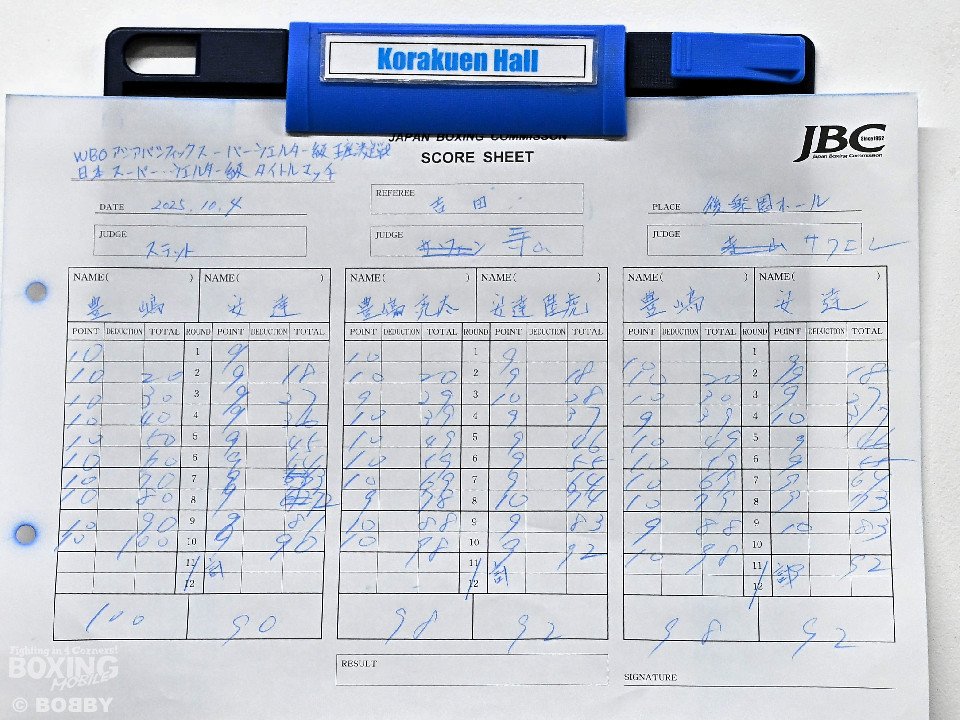 Korakuen Hall
JAPAN BOXING COMMISSON
SCORE SHEET
JBC Since1952
Japan Boxing Commission
WBOアジアパシフィックスーパーウェルター級王座決定戦
日本スーパーウェルター級タイトルマッチ
DATE 2025.10.4
REFEREE 吉田
PLACE 後楽園ホール
JUDGE JUDGE JUDGE
NAME( ) NAME( ) NAME( ) NAME( ) NAME( ) NAME( )
豊嶋 安達 豊嶋亮太 安達陸虎 豊嶋 安達
POINT DEDUCTION TOTAL ROUND POINT DEDUCTION TOTAL POINT DEDUCTION TOTAL ROUND POINT DEDUCTION TOTAL POINT DEDUCTION TOTAL ROUND POINT DEDUCTION TOTAL
10 1 9 10 1 9 1 9
10 20 2 9 18 10 20 2 9 18 10 20 2 9 18
10 30 3 9 27 9 29 3 10 28 10 30 3 9 27
10 40 4 9 36 10 39 4 9 37 9 39 4 10 37
10 50 5 9 45 10 49 5 9 46 10 49 5 9 46
10 60 6 9 54 10 59 6 9 55 10 59 6 9 55
10 70 7 9 63 10 69 7 9 64 10 69 7 9 64
10 80 8 9 72 9 78 8 10 74 10 79 8 9 73
10 90 9 9 81 10 88 9 9 83 9 88 9 10 83
10 100 10 9 90 10 98 10 9 92 10 98 10 92
11 計 11 計 11 計
12 12 12
100 90 98 92 98 92
RESULT
SIGNATURE
Fighting in 4 Corners!
BOXING
MOBILE
© BOBBY